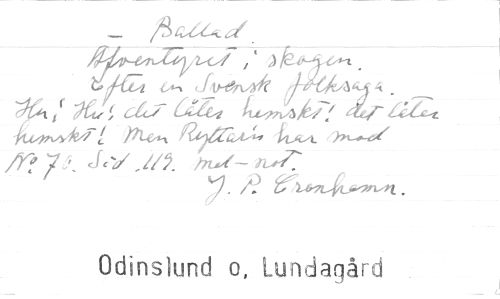 — Ballad.
Äfventyret i skogen.
Efter en Svensk folksaga.
Hu! Hu! det låter hemskt! det låter
hemskt! Men Ryttarn har mod
No. 70. Sid. 119. mel-not.
J. P. Cronhamn.
Odinslund o, Lundagård